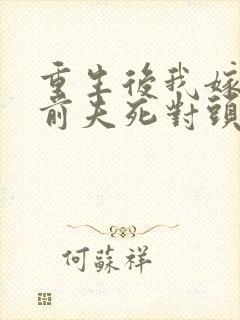 重生後我嫁
前夫死對頭
何蘇祥